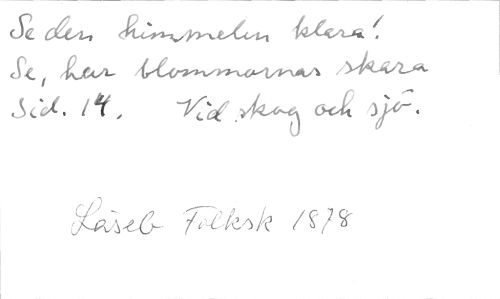 Se den himmelen klara!
Se, hur blommornas skara
Sid. 14. Vid skog och sjö.
Läseb Folksk 1878